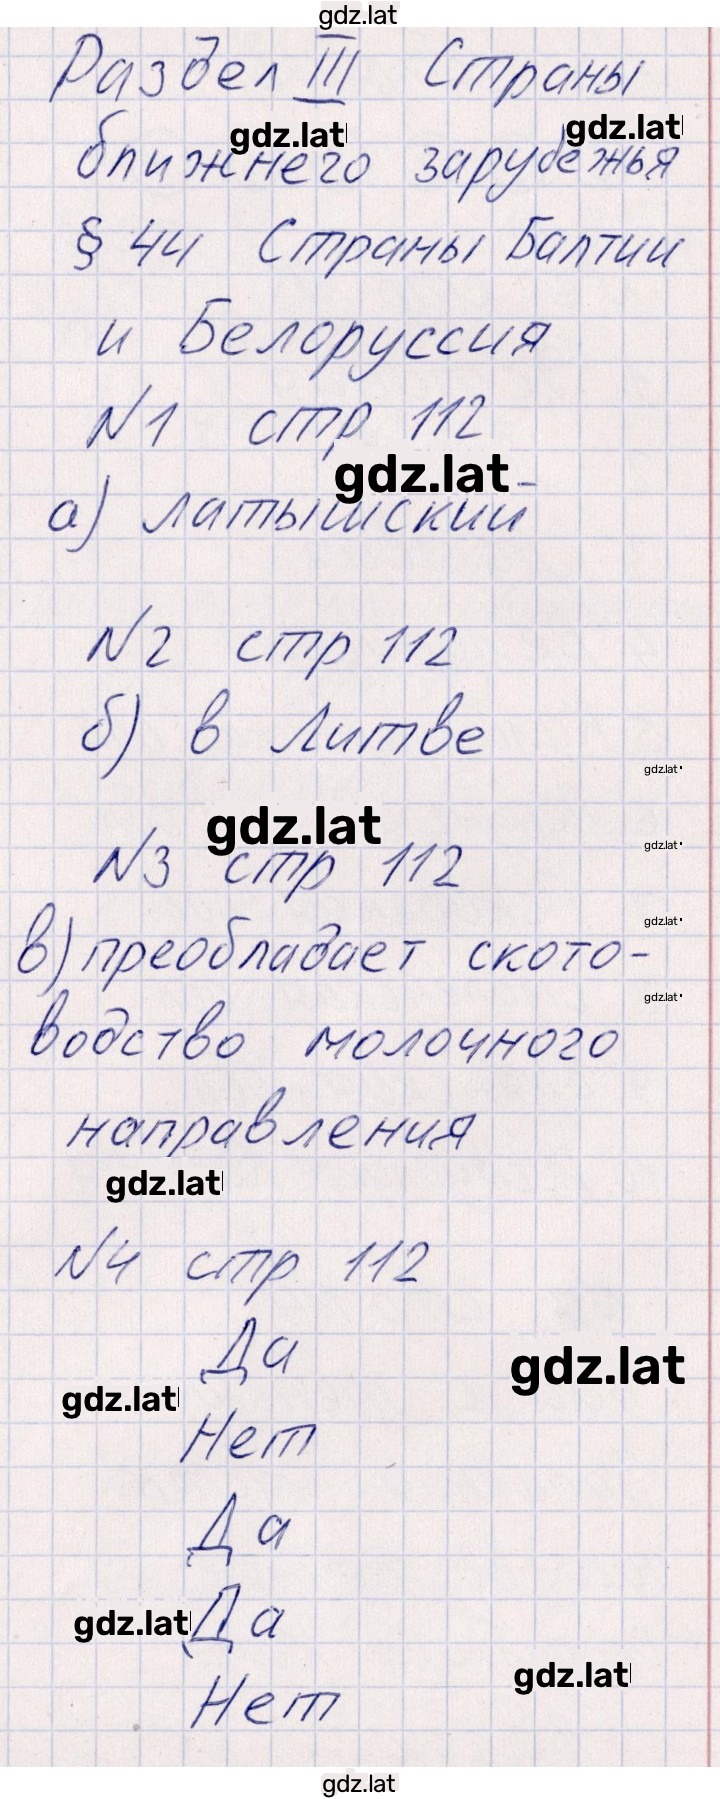 gdz.lat
Раздел III Страны
gdz.lat gdz.lat
ближнего зарубежья
§ 44 Страны Балтии
и Белоруссия
N1 стр 112
gdz.lat
а) латышский
N2 стр 112
б) в Литве
gdz.lat
gdz.lat
N3 стр 112
gdz.lat
в) преобладает ското-
gdz.lat
gdz.lat
водство молочного
направления
gdz.lat
N4 стр 112
Да
gdz.lat
gdz.lat
Нет
Да
Да
gdz.lat
gdz.lat
Нет
gdz.lat